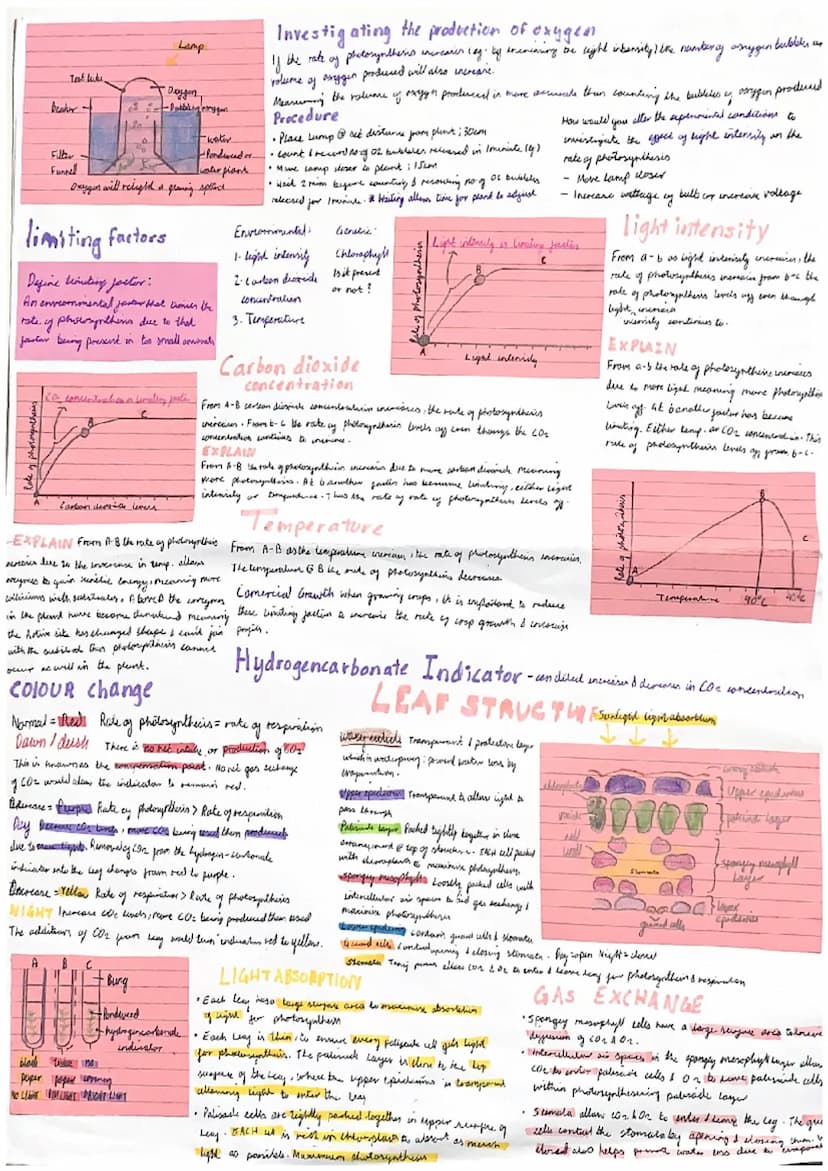 Investigating the production of oxygen
If the rate of photosynthesis increases (eg. by increasing the light intensity) the number of oxygen bubbles or
volume of oxygen produced will also increase.
Measuring the volume of oxygen produced is more accurate than counting the bubbles of oxygen produced
Lamp
Test tube
Oxygen
Beaker
Bubbling oxygen
Water
Filter
Funnel
Pondweed or
water plant
Oxygen will relight a glowing splint
Procedure
• Place lamp @ set distance from plant ; 30cm
• Count & record no of O2 bubbles released in 1 minute
• Move lamp closer to plant ; 15cm
• Wait 2 min before counting & recording no of O2 bubbles
released for 1 minute. * Waiting allows time for plant to adjust
How would you alter the experimental conditions to
investigate the effect of light intensity on the
rate of photosynthesis
– Move lamp closer
– Increase wattage of bulb or increase voltage
limiting factors
Define limiting factor:
An environmental factor that limits the
rate of photosynthesis due to that
factor being present in too small amounts
Environmental:
1. Light intensity
2. Carbon dioxide
concentration
3. Temperature
Genetic:
Chlorophyll
Is it present
or not?
Light intensity is limiting factor
Rate of photosynthesis
A
B
C
Light intensity
light intensity
From a-b as light intensity increases, the
rate of photosynthesis increases from b-c the
rate of photosynthesis levels off even though
light
intensity continues to.
EXPLAIN
From a-b the rate of photosynthesis increases
due to more light meaning more photosynthesis
levels off. At b another factor has become
limiting. Either temp. or CO2 concentration. This
rate of photosynthesis levels off from b-c.
CO2 concentration is limiting factor
Rate of photosynthesis
A
B
C
Carbon dioxide levels
Carbon dioxide
concentration
From A-B carbon dioxide concentration increases, the rate of photosynthesis
increases. From B-C the rate of photosynthesis levels off even though the CO2
concentration continues to increase.
EXPLAIN
From A-B the rate of photosynthesis increases due to more carbon dioxide meaning
more photosynthesis. At B another factor has become limiting, either light
intensity or temperature. Thus the rate of rate of photosynthesis levels off.
Rate of photosynthesis
A
B
C
Temperature
40°C
Temperature
From A-B as the temperature increases, the rate of photosynthesis increases.
The temperature @ B the rate of photosynthesis decreases.
Comercial Growth when growing crops, it is important to reduce
these limiting factors to increase the rate of crop growth & increase
profits.
EXPLAIN From A-B the rate of photosynthesis
increases due to the increase in temp. allows
enzymes to gain kinetic energy, meaning more
collisions with substrates. After B the enzymes
in the plant have become denatured meaning
the Active site has changed shape & can't join
with the substrate thus photosynthesis cannot
occur as well in the plant.
Hydrogencarbonate Indicator - can detect increases & decreases in CO2 concentration
COLOUR change
Normal = Red Rate of photosynthesis = rate of respiration
Dawn / dusk There is no net intake or production of CO2
This is known as the compensation point. No net gas exchange
of CO2 would allow the indicator to remain red.
Decrease = Purple Rate of photosynthesis > Rate of respiration
Day Decrease CO2 levels, more CO2 being used than produced
due to more light. Removing CO2 from the hydrogen-carbonate
indicator into the leaf changes from red to purple.
Decrease = Yellow Rate of respiration > Rate of photosynthesis
NIGHT Increase CO2 levels, more CO2 being produced than used
The additions of CO2 from leaf would turn indicator red to yellow.
LEAF STRUCTURE
Sunlight light absorbtion
Waxy cuticle Transparent & protective layer
which is waterproof: prevent water loss by
evaporation.
Upper epidermis Transparent to allow light to
pass through
Palisade layer Packed tightly together in close
arrangement @ top of structure. EACH cell packed
with chloroplasts to maximise photosynthesis.
Spongy mesophyll Loosely packed cells with
intercellular air spaces to aid gas exchange &
maximise photosynthesis
Lower epidermis Contains guard cells & stomata
Guard cells Control opening & closing stomata. Day=open Night=closed
Stomata Tiny pores allow CO2 & O2 to enter & leave leaf for photosynthesis & respiration
waxy cuticle
Upper epidermis
chloroplasts
palisade layer
cell
wall
spongy mesophyll
layer
Stomata
lower
epidermis
guard cells
A
B
C
Bung
Pondweed
hydrogencarbonate
indicator
black
paper
NO LIGHT
paper
DIM LIGHT
no
covering
BRIGHT LIGHT
LIGHT ABSORPTION
• Each leaf has a large surface area to maximise absorption
of light for photosynthesis
• Each leaf is thin, to ensure every palisade cell gets light
for photosynthesis. The palisade layer is close to the top
surface of the leaf, where the upper epidermis is transparent
allowing light to enter the leaf
• Palisade cells are tightly packed together in upper surface of
leaf. EACH cell is rich in chloroplasts to absorb as much
light as possible. Maximum photosynthesis
GAS EXCHANGE
• Spongey mesophyll cells have a large surface area to
diffusion of CO2 & O2.
• Intercellular air spaces in the spongey mesophyll layer allow
CO2 to enter palisade cells & O2 to leave palisade cells
within photosynthesising palisade layer
• Stomata allow CO2 & O2 to enter & leave the leaf. The guard
cells control the stomata by opening & closing them.
closed also helps prevent water loss due to evaporation